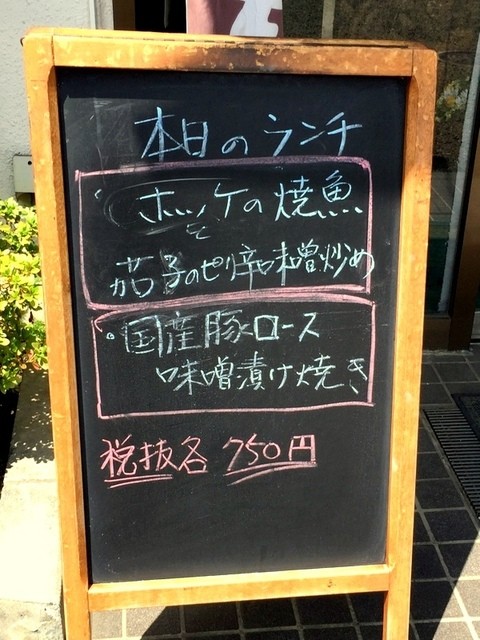 本日のランチ
・ホッケの焼魚
と
茄子のピリ辛味噌炒め
・国産豚ロース
味噌漬け焼き
税抜各 750円